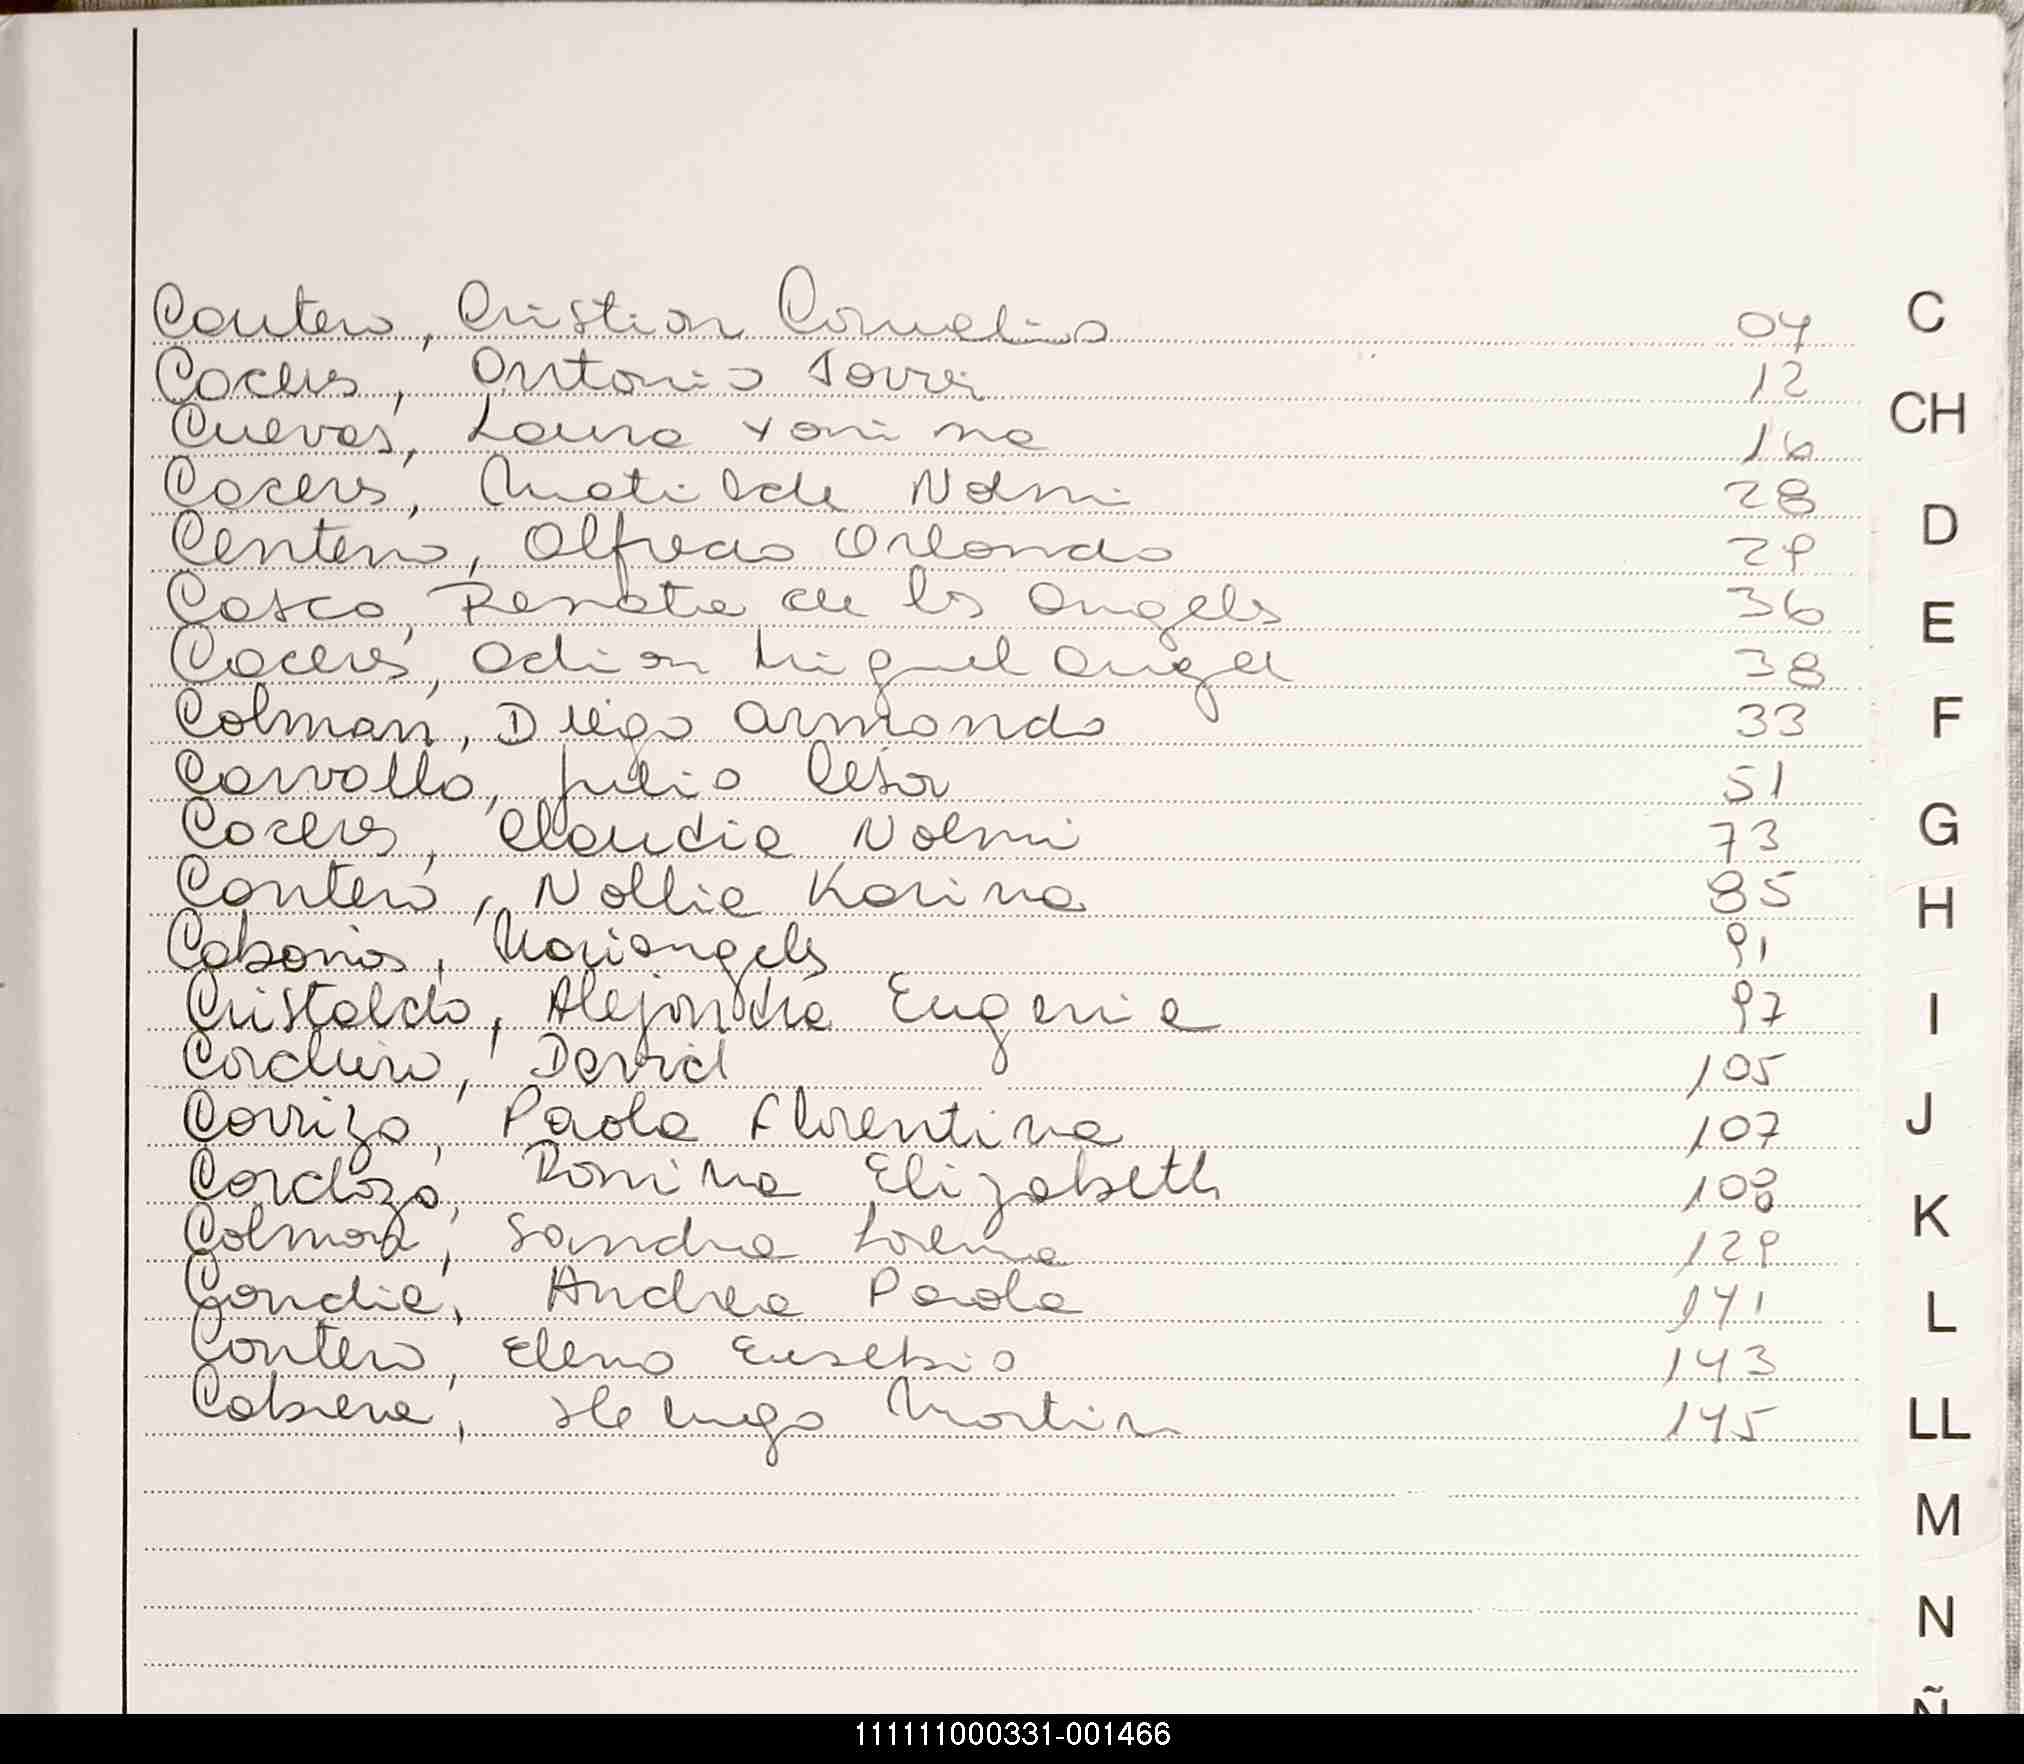 Cantero, Cristian Cornelio 04
Caceres, Antonio Javier 12
Cuevas, Laura Yanina 16
Caceres, Matilde Noemi 28
Centeno, Alfredo Orlando 29
Casco, Renata de los Angeles 36
Caceres, Adrian Miguel Angel 38
Colman, Diego Armando 33
Carvallo, Julio Cesar 51
Caceres, Claudia Noemi 73
Cantero, Nollia Karina 85
Mariangeles 91
Cristaldo, Alejandra Eugenia 97
Cordeiro, David 105
Carrizo, Paola Florentina 107
Cardozo, Romina Elizabeth 108
Colman, Sandra Lorena 129
Candia, Andrea Paola 141
Cantero, Eleno Eusebio 143
Cabrera, Hugo Martin 145
C
CH
D
E
F
G
H
I
J
K
L
LL
M
N
Ñ
111111000331-001466